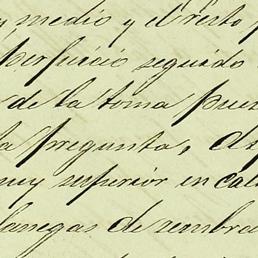 y medio y el resto
perjuicio seguido
de la toma pues
a pregunta, di
muy superior en cali
fanegas de sembra